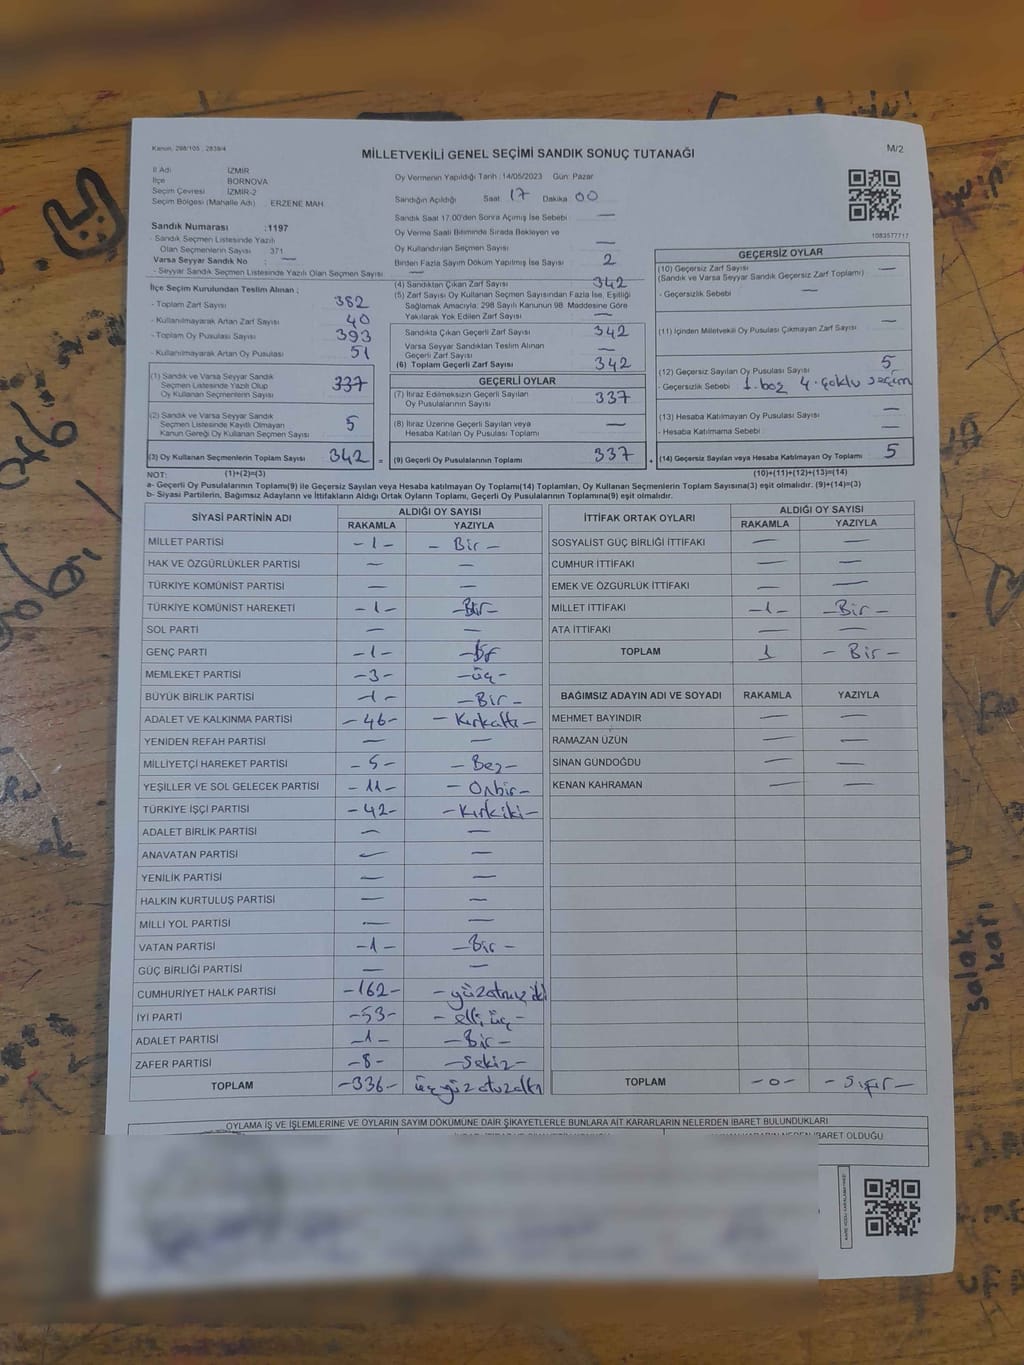 Kanun, 298/105 , 2839/4
MİLLETVEKİLİ GENEL SEÇİMİ SANDIK SONUÇ TUTANAĞI
M/2
İl Adı İZMİR
İlçe BORNOVA
Seçim Çevresi İZMİR-2
Seçim Bölgesi (Mahalle Adı) . ERZENE MAH.
Sandık Numarası :1197
- Sandık Seçmen Listesinde Yazılı
Olan Seçmenlerin Sayısı 371
Varsa Seyyar Sandık No : —
- Seyyar Sandık Seçmen Listesinde Yazılı Olan Seçmen Sayısı : —
İlçe Seçim Kurulundan Teslim Alınan ;
- Toplam Zarf Sayısı 382
- Kullanılmayarak Artan Zarf Sayısı 40
- Toplam Oy Pusulası Sayısı 393
- Kullanılmayarak Artan Oy Pusulası 51
(1) Sandık ve Varsa Seyyar Sandık
Seçmen Listesinde Yazılı Olup
Oy Kullanan Seçmenlerin Sayısı 337
(2) Sandık ve Varsa Seyyar Sandık
Seçmen Listesinde Kayıtlı Olmayan
Kanun Gereği Oy Kullanan Seçmen Sayısı 5
(3) Oy Kullanan Seçmenlerin Toplam Sayısı 342 =
Oy Vermenin Yapıldığı Tarih : 14/05/2023 Gün: Pazar
Sandığın Açıldığı Saat 17 Dakika 00
Sandık Saat 17.00'den Sonra Açılmış İse Sebebi : —
Oy Verme Saati Bitiminde Sırada Bekleyen ve
Oy Kullandırılan Seçmen Sayısı —
Birden Fazla Sayım Döküm Yapılmış İse Sayısı 2
(4) Sandıktan Çıkan Zarf Sayısı 342
(5) Zarf Sayısı Oy Kullanan Seçmen Sayısından Fazla İse, Eşitliği
Sağlamak Amacıyla, 298 Sayılı Kanunun 98. Maddesine Göre
Yakılarak Yok Edilen Zarf Sayısı —
Sandıkta Çıkan Geçerli Zarf Sayısı 342
Varsa Seyyar Sandıktan Teslim Alınan
Geçerli Zarf Sayısı —
(6) Toplam Geçerli Zarf Sayısı 342
GEÇERLİ OYLAR
(7) İtiraz Edilmeksizin Geçerli Sayılan
Oy Pusulalarının Sayısı 337
(8) İtiraz Üzerine Geçerli Sayılan veya
Hesaba Katılan Oy Pusulası Toplamı —
(9) Geçerli Oy Pusulalarının Toplamı 337 +
1083577717
GEÇERSİZ OYLAR
(10) Geçersiz Zarf Sayısı —
(Sandık ve Varsa Seyyar Sandık Geçersiz Zarf Toplamı)
- Geçersizlik Sebebi : —
(11) İçinden Milletvekili Oy Pusulası Çıkmayan Zarf Sayısı —
(12) Geçersiz Sayılan Oy Pusulası Sayısı 5
- Geçersizlik Sebebi : 1.boş 4.çoklu seçim
(13) Hesaba Katılmayan Oy Pusulası Sayısı —
- Hesaba Katılmama Sebebi : —
(14) Geçersiz Sayılan veya Hesaba Katılmayan Oy Toplamı 5
NOT: (1)+(2)=(3) (10)+(11)+(12)+(13)=(14)
a- Geçerli Oy Pusulalarının Toplamı(9) ile Geçersiz Sayılan veya Hesaba katılmayan Oy Toplamı(14) Toplamları, Oy Kullanan Seçmenlerin Toplam Sayısına(3) eşit olmalıdır. (9)+(14)=(3)
b- Siyasi Partilerin, Bağımsız Adayların ve İttifakların Aldığı Ortak Oyların Toplamı, Geçerli Oy Pusulalarının Toplamına(9) eşit olmalıdır.
SİYASİ PARTİNİN ADI ALDIĞI OY SAYISI
RAKAMLA YAZIYLA
MİLLET PARTİSİ -1- - Bir -
HAK VE ÖZGÜRLÜKLER PARTİSİ — —
TÜRKİYE KOMÜNİST PARTİSİ — —
TÜRKİYE KOMÜNİST HAREKETİ -1- -Bir-
SOL PARTİ — —
GENÇ PARTİ -1-
MEMLEKET PARTİSİ -3- -üç-
BÜYÜK BİRLİK PARTİSİ -1- -Bir-
ADALET VE KALKINMA PARTİSİ -46- - Kırkaltı -
YENİDEN REFAH PARTİSİ — —
MİLLİYETÇİ HAREKET PARTİSİ -5- - Beş -
YEŞİLLER VE SOL GELECEK PARTİSİ -11- - Onbir -
TÜRKİYE İŞÇİ PARTİSİ -42- - Kırkiki -
ADALET BİRLİK PARTİSİ — —
ANAVATAN PARTİSİ — —
YENİLİK PARTİSİ — —
HALKIN KURTULUŞ PARTİSİ — —
MİLLİ YOL PARTİSİ — —
VATAN PARTİSİ -1- -Bir -
GÜÇ BİRLİĞİ PARTİSİ — —
CUMHURİYET HALK PARTİSİ -162- - yüzatmış iki
İYİ PARTİ -53- - elli üç -
ADALET PARTİSİ -1- -Bir -
ZAFER PARTİSİ -8- -Sekiz-
TOPLAM -336- üçyüzotuzaltı
İTTİFAK ORTAK OYLARI ALDIĞI OY SAYISI
RAKAMLA YAZIYLA
SOSYALİST GÜÇ BİRLİĞİ İTTİFAKI — —
CUMHUR İTTİFAKI — —
EMEK VE ÖZGÜRLÜK İTTİFAKI — —
MİLLET İTTİFAKI -1- -Bir -
ATA İTTİFAKI — —
TOPLAM 1 - Bir -
BAĞIMSIZ ADAYIN ADI VE SOYADI RAKAMLA YAZIYLA
MEHMET BAYINDIR — —
RAMAZAN ÜZÜN — —
SİNAN GÜNDOĞDU — —
KENAN KAHRAMAN — —
TOPLAM -0- - Sıfır -
OYLAMA İŞ VE İŞLEMLERİNE VE OYLARIN SAYIM DÖKÜMÜNE DAİR ŞİKAYETLERLE BUNLARA AİT KARARLARIN NELERDEN İBARET BULUNDUKLARI
İBARET OLDUĞU
salak
karı